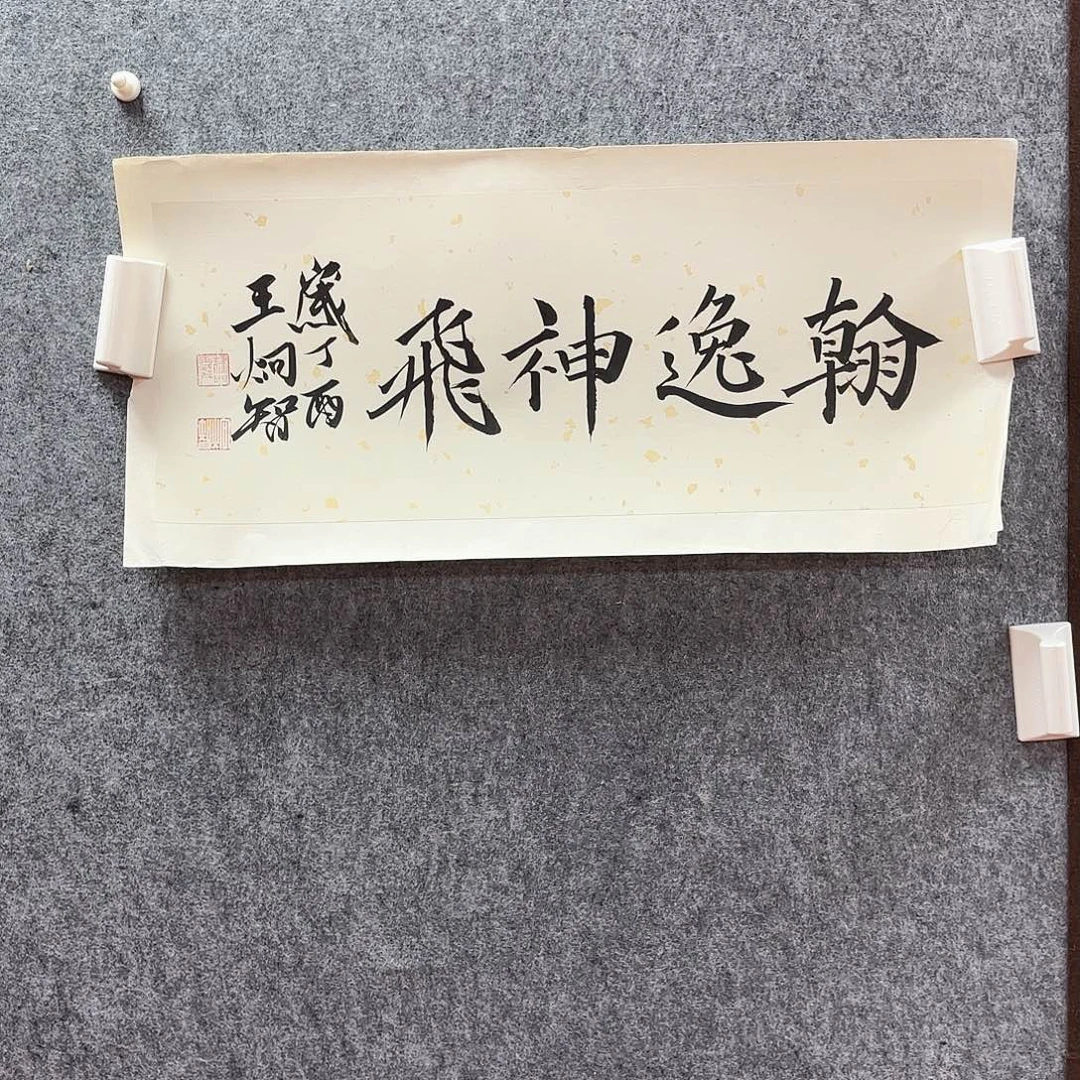 翰逸神飛
歲丁酉
王炯智